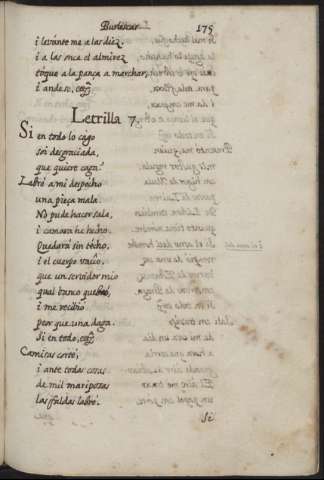 Burlescas 175
i levante me a las diez.
i a las once el almirez
toque a la pança a marchar,
i andese,
Letrilla 7.
Si en todo lo cago
soi desgraciada,
que quiere caga?
Labrò a mi despecho
una pieça mala.
No pude hacer sala,
i camara he hecho.
Quedarà sin techo,
i el cuerpo vacio.
que un servidor mio
qual banco quebrò,
i me recibiò
peor que una daga.
Si en todo,
Camisas cortè,
i ante todas cosas
de mil mariposas
las faldas labrè.
Si